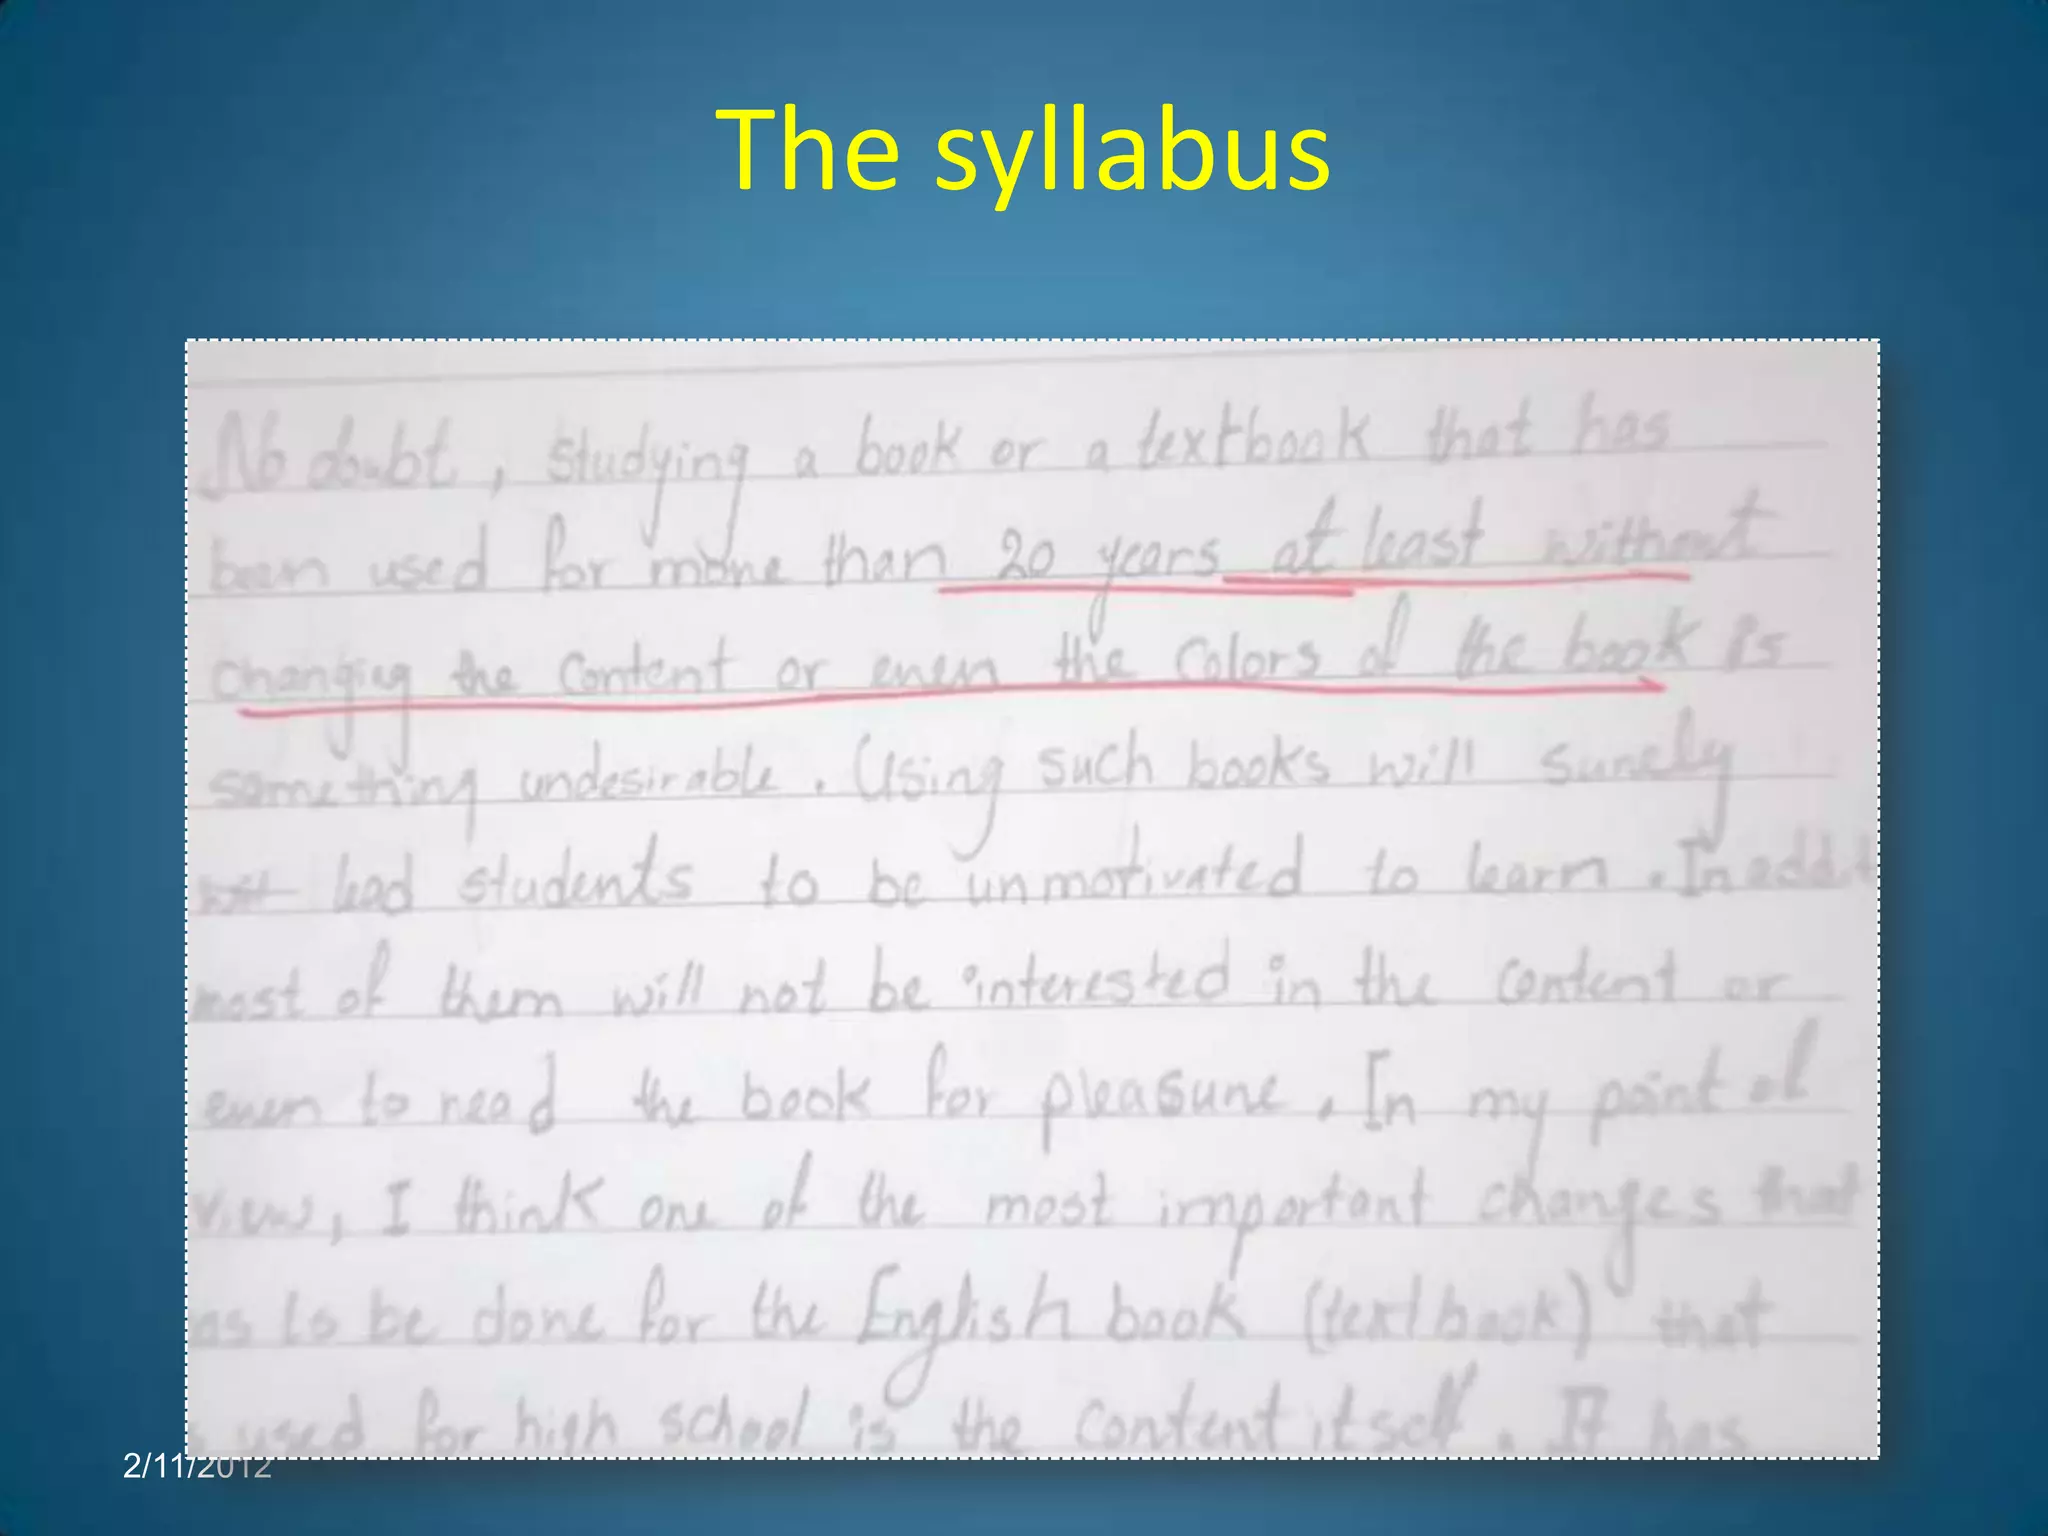 The syllabus
No doubt, studying a book or a textbook that has
been used for more than 20 years at least without
changing the content or even the colors of the book is
something undesirable. Using such books will surely
lead students to be unmotivated to learn. In addit
most of them will not be interested in the content or
even to read the book for pleasure. In my point of
view, I think one of the most important changes that
as to be done for the English book (textbook) that
used for high school is the content itself. It has
2/11/2012